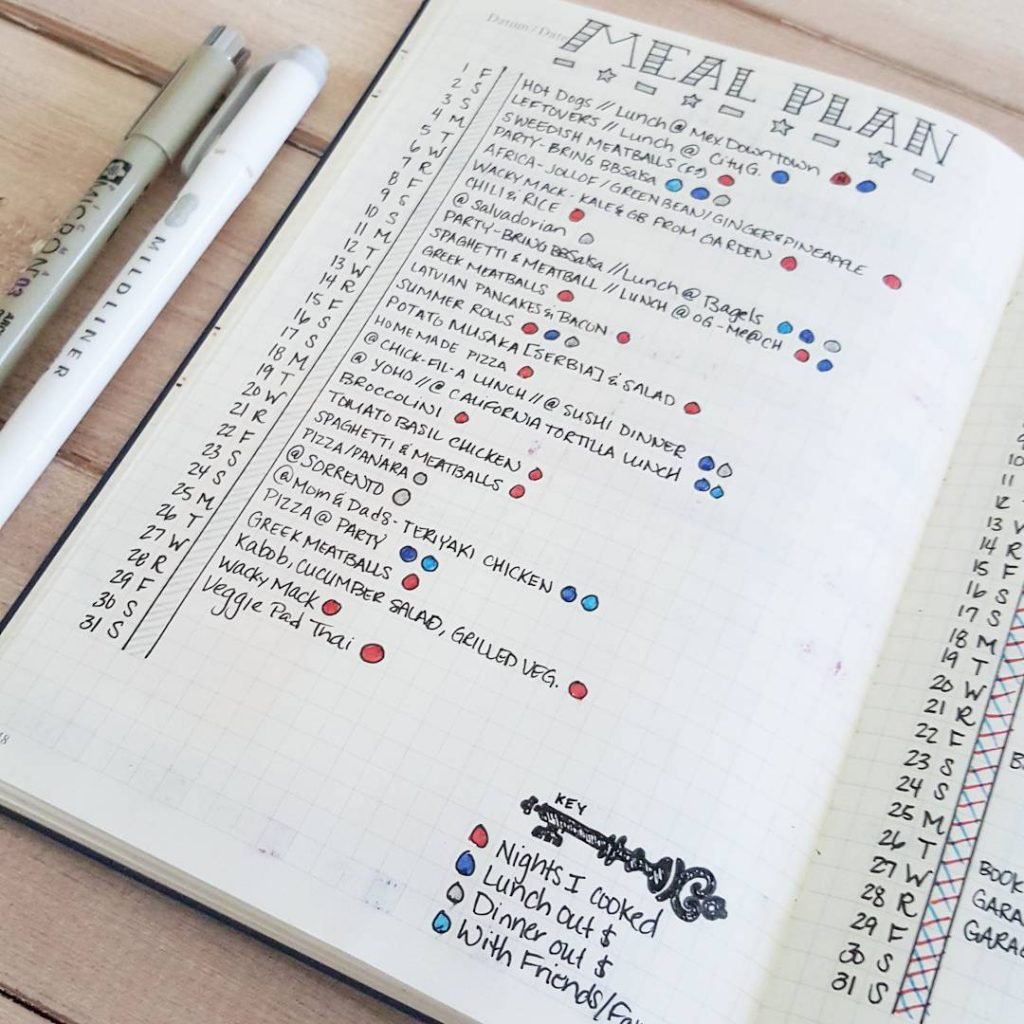 Datum / Date
MEAL PLAN
1 F HOT DOGS // LUNCH @ MEX DOWNTOWN
2 S LEFTOVERS // LUNCH @ CITY G.
3 S SWEEDISH MEATBALLS
4 M PARTY-BRING BBSALSA
5 T AFRICA-JOLLOF/GREENBEAN/GINGER&PINEAPPLE
6 W WACKY MACK-KALE & GB FROM GARDEN
7 R CHILI & RICE
8 F @ Salvadorian
9 S PARTY-BRING BBSALSA // Lunch @ Bagels
10 S SPAGHETTI & MEATBALL // LUNCH @ OG-
11 M GREEK MEATBALLS
12 T LATVIAN PANCAKES & BACON
13 W SUMMER ROLLS
14 R POTATO MUSAKA [SERBIA] & SALAD
15 F HOMEMADE PIZZA
16 S @ CHICK-FIL-A LUNCH // @ SUSHI DINNER
17 S @ YOHO // @ CALIFORNIA TORTILLA LUNCH
18 M BROCCOLINI
19 T TOMATO BASIL CHICKEN
20 W SPAGHETTI & MEATBALLS
21 R PIZZA/PANARA
22 F @ SORRENTO
23 S @ Mom & Dads-TERIYAKI CHICKEN
24 S PIZZA @ PARTY
25 M GREEK MEATBALLS
26 T Kabob, CUCUMBER SALAD, GRILLED VEG.
27 W Wacky Mack
28 R Veggie Pad Thai
29 F
30 S
31 S
KEY
Nights I cooked
Lunch out $
Dinner out $
With Friends/
MICRON
03
MILDLINER
10
11
12
13
14 R
15 F
16 S
17 S
18 M
19 T
20 W
21 R
22 F
23 S
24 S
25 M
26 T
27 W
28 R
29 F
30 S
31 S
BOOK
GARA
GARAG